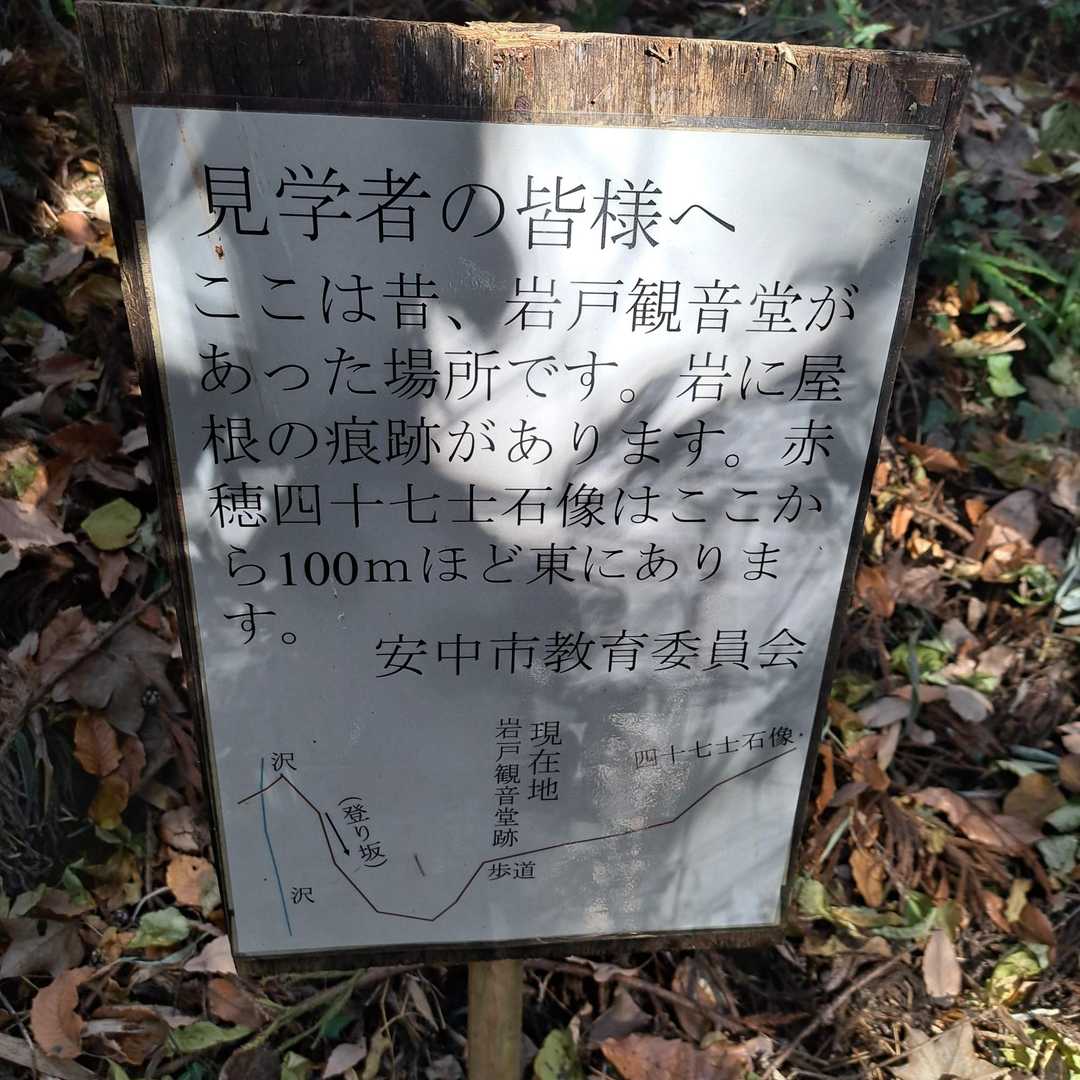 見学者の皆様へ
ここは昔、岩戸観音堂が
あった場所です。岩に屋
根の痕跡があります。赤
穂四十七士石像はここか
ら100mほど東にありま
す。
安中市教育委員会
現在地
岩戸観音堂跡
四十七士石像
沢
(登り坂)
歩道
沢